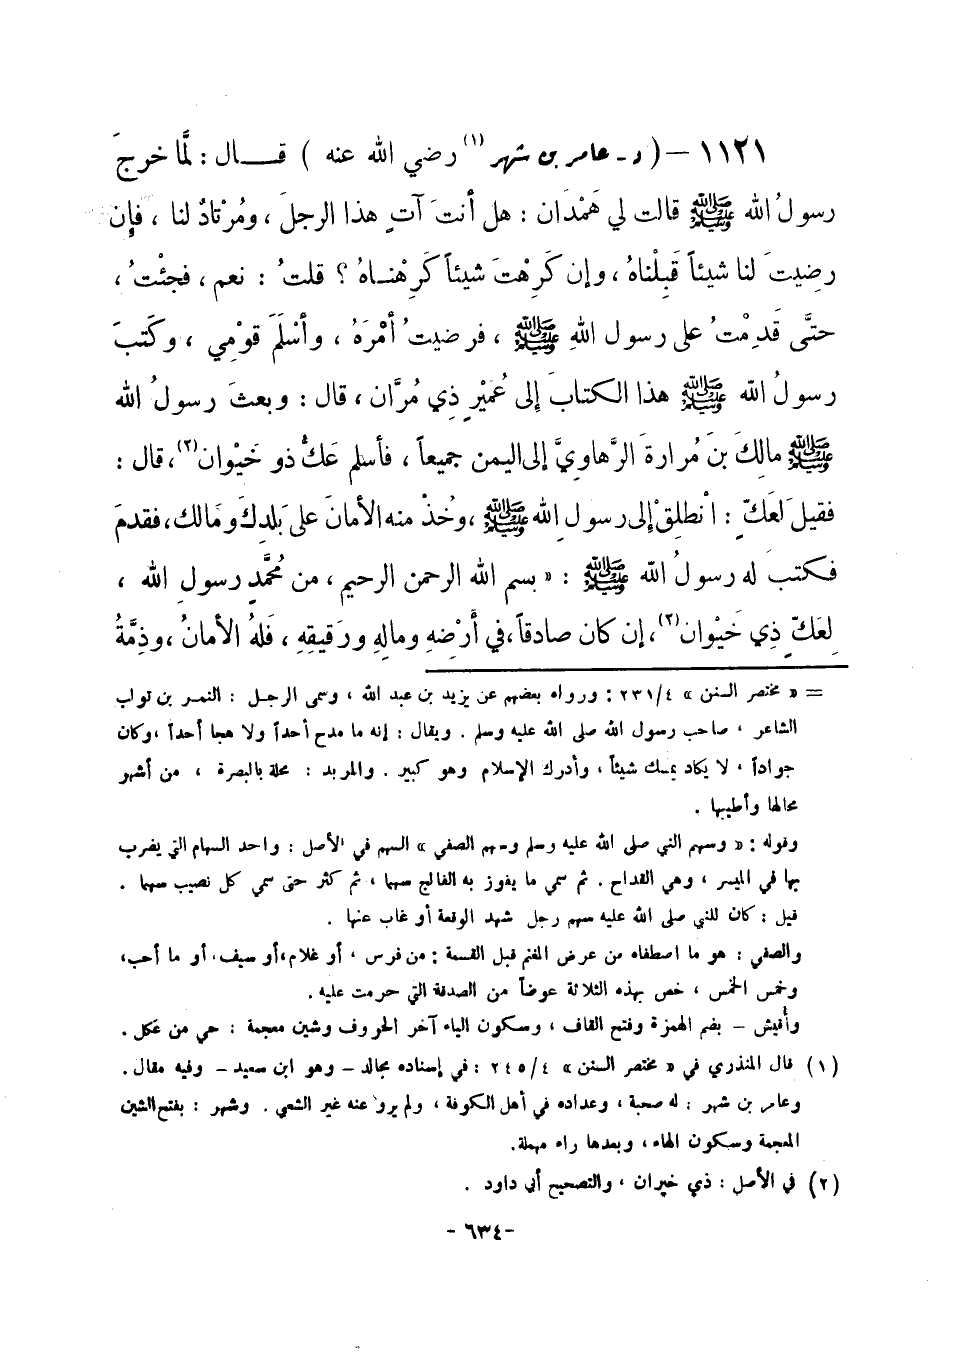 ١١٢١ – ( د - عامر بن شهر (١) رضي الله عنه ) قـــال : لمَّا خرجَ
رسولُ الله ﷺ قالت لي هَمْدَان : هل أنتَ آتٍ هذا الرجلَ ، ومُرْتادٌ لنا ، فإن
رضِيتَ لنا شيئاً قَبِلْناهُ ، وإن كَرِهْتَ شيئاً كَرِهْنـاهُ ؟ قلتُ : نعم ، فجئْتُ ،
حتَّى قَدِمْتُ على رسول اللهِ ﷺ ، فرضيتُ أمْرَهُ ، وأسْلَمَ قوْمِي ، وكَتبَ
رسولُ الله ﷺ هذا الكتابَ إلى عُمَيْرٍ ذِي مُرَّان ، قال : وبعثَ رسولُ الله
ﷺ مالِكَ بنَ مُرارةَ الرَّهاوِيَّ إلى اليمن جميعاً ، فأسلم عَكٌّ ذو خَيْوان (٢) ، قال :
فقيلَ لعَكّ : انْطلِقْ إلى رسولِ الله ﷺ ، وخُذْ منه الأمانَ على بَلدِكَ ومَالك ، فقدمَ
فكتبَ له رسولُ الله ﷺ : « بسم الله الرحمن الرحيم ، من مُحمَّدٍ رسولِ الله ،
لِعَكّ ذِي خَيْوان (٢) ، إن كان صادقاً ، في أَرْضِهِ ومالِهِ ورَقيقِهِ ، فَلهُ الأمانُ ، وذِمَّةُ
= « مختصر السنن » ٢٣١/٤ : ورواه بعضهم عن يزيد بن عبد الله ، وسمى الرجل : النمر بن تولب
الشاعر ، صاحب رسول الله صلى الله عليه وسلم . ويقال : إنه ما مدح أحداً ولا هجا أحداً ، وكان
جواداً ، لا يكاد يمسك شيئاً ، وأدرك الإسلام وهو كبير . والمربد : محلة بالبصرة ، من أشهر
محالها وأطيبها .
وقوله : « وسهم النبي صلى الله عليه وسلم وسهم الصفي » السهم في الأصل : واحد السهام التي يضرب
بها في الميسر ، وهي القداح . ثم سمي ما يفوز به الفالج سهما ، ثم كثر حتى سمي كل نصيب سهما .
قيل : كان للنبي صلى الله عليه سهم رجل شهد الوقعة أو غاب عنها .
والصفي : هو ما اصطفاه من عرض المغنم قبل القسمة : من فرس ، أو غلام ، أو سيف ، أو ما أحب ،
وخمس الخمس ، خص بهذه الثلاثة عوضاً من الصدقة التي حرمت عليه .
وأُقيش – بضم الهمزة وفتح القاف ، وسكون الياء آخر الحروف وشين معجمة : حي من عكل .
(١) قال المنذري في « مختصر السنن » ٢٤٥/٤ : في إسناده مجالد – وهو ابن سعيد – وفيه مقال .
وعامر بن شهر : له صحبة ، وعداده في أهل الكوفة ، ولم يرو عنه غير الشعبي . وشهر : بفتح الشين
المعجمة وسكون الهاء ، وبعدها راء مهملة .
(٢) في الأصل : ذي خيران ، والتصحيح أبي داود .
- ٦٣٤ -